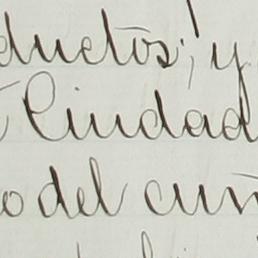 ductos; y
Ciudad
o del cum